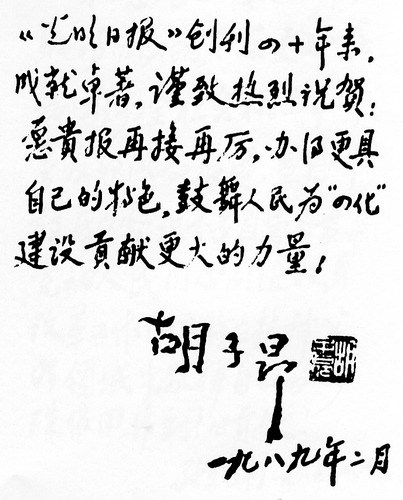 《光明日报》创刊四十年来,
成就卓著,谨致热烈祝賀;
愿貴报再接再厉,办得更具
自己的特色,鼓舞人民为"四化"
建设貢献更大的力量!
胡子昂
一九八九年二月